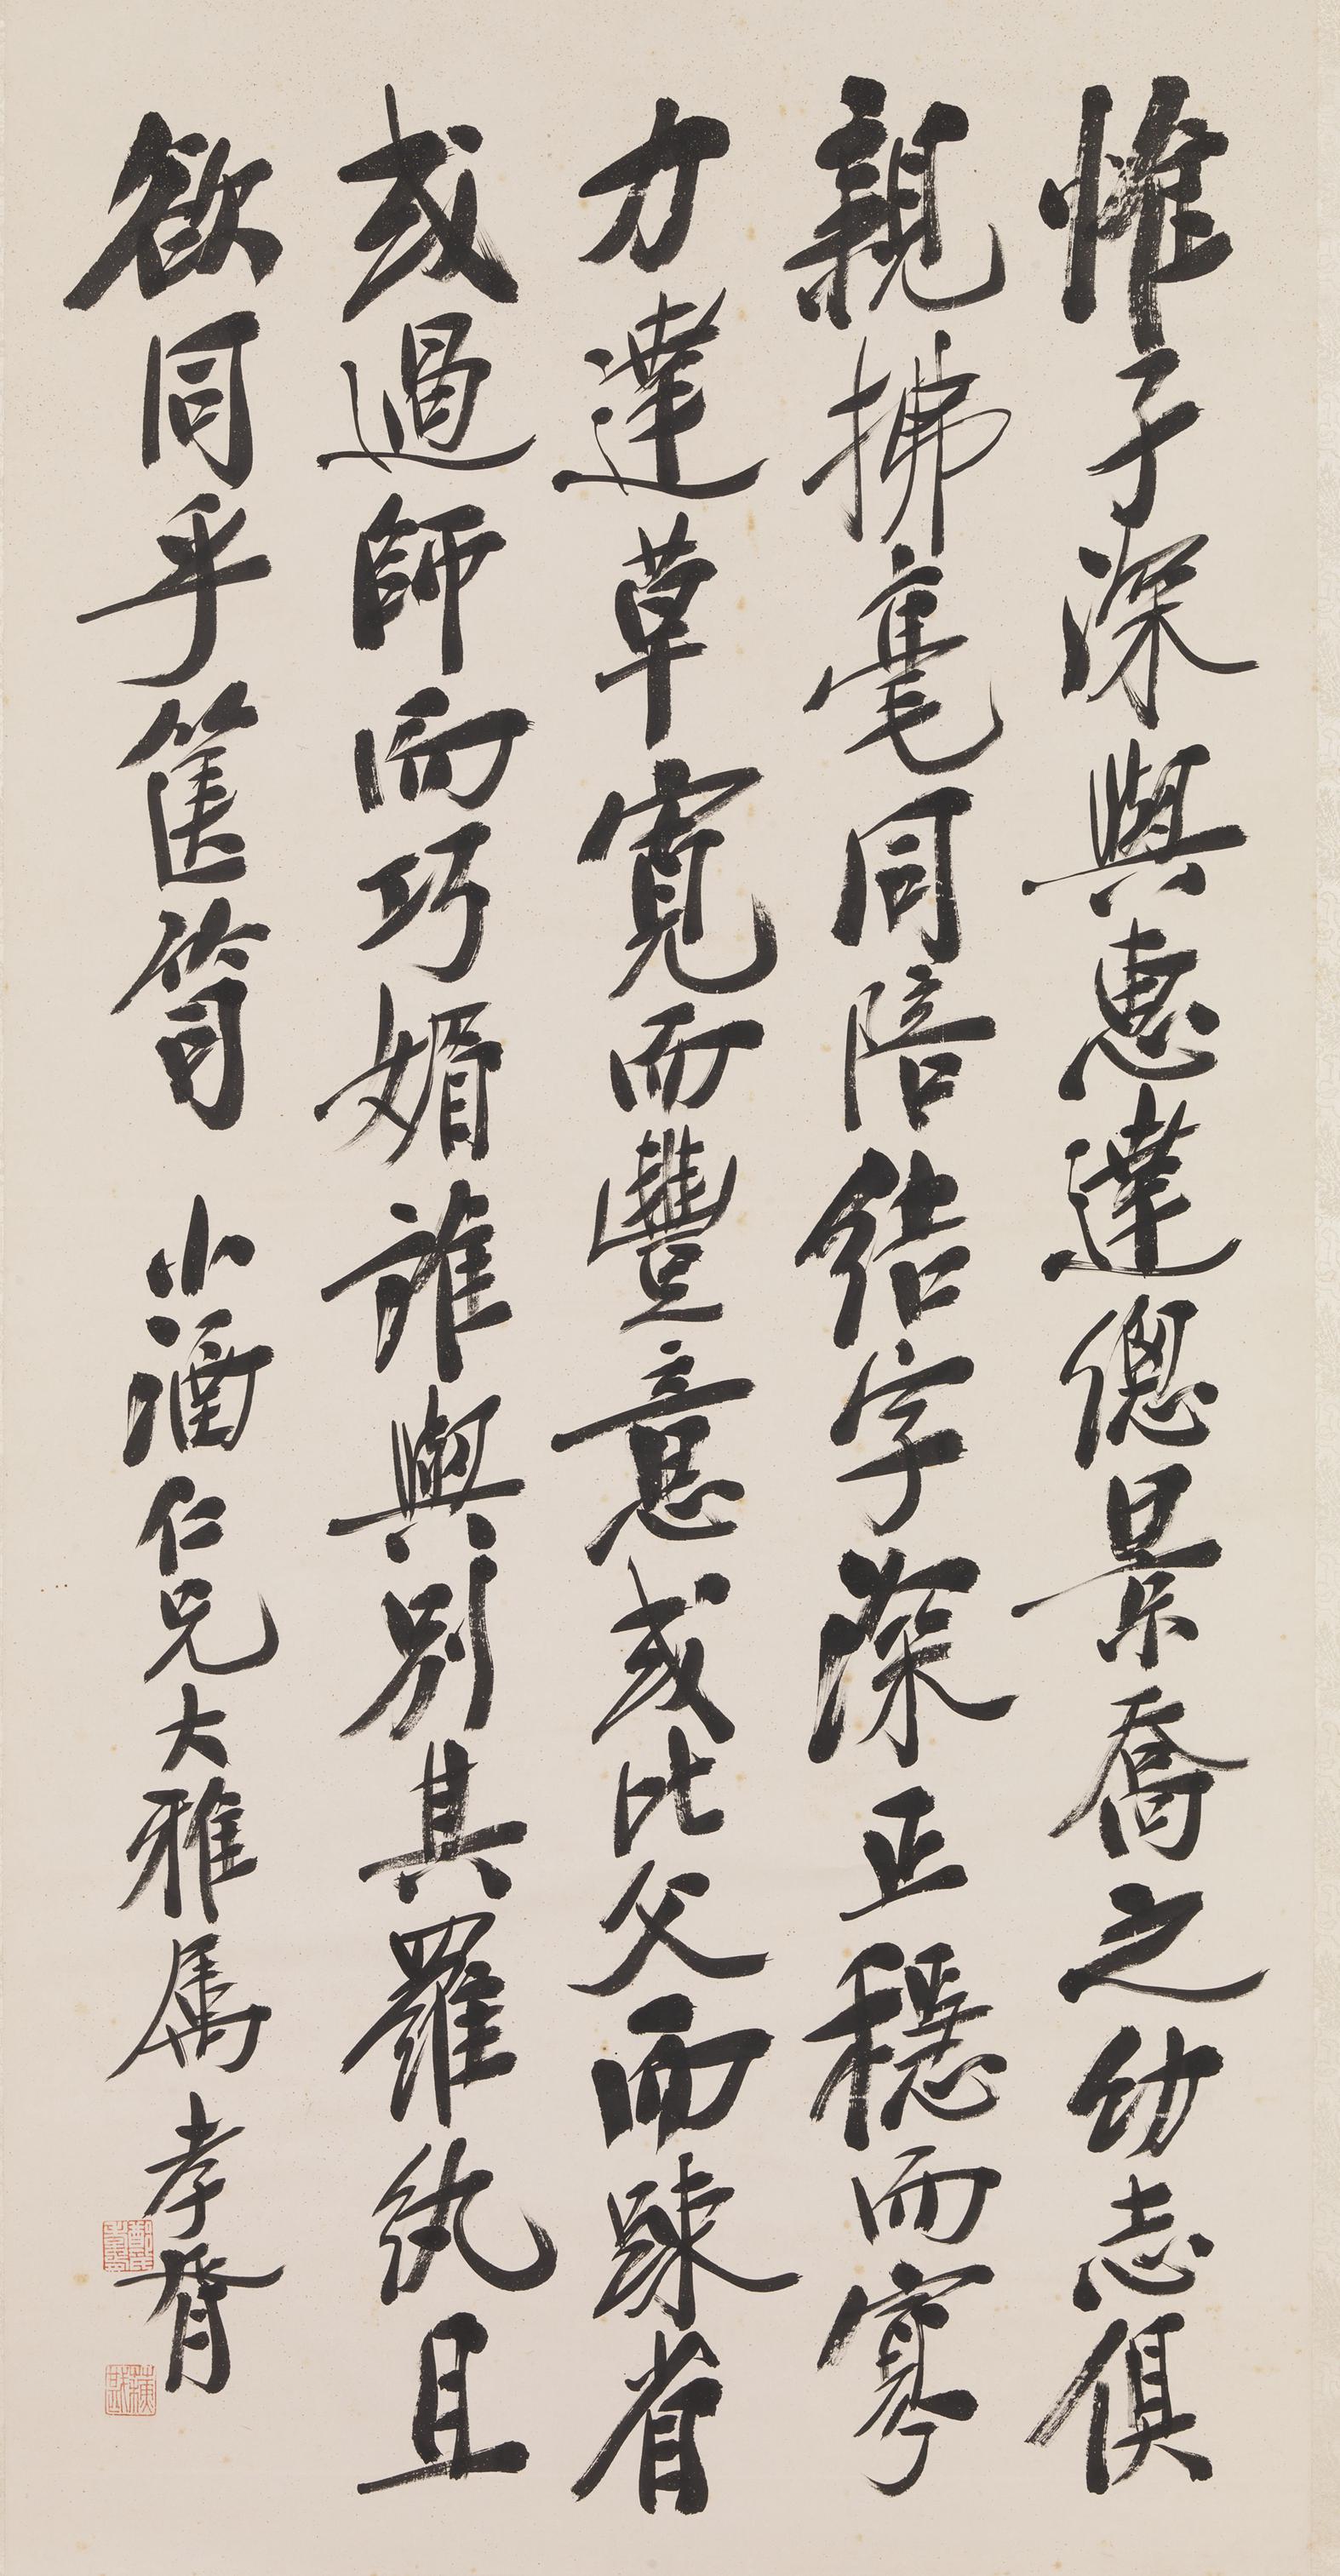 惟子深與惠達傯景喬之幼志俱
親拂毫同陪結字深正穩而寡
力達草寬而豐意或比父而踈省
或過師而巧媚誰與別其羅紈且
欲同乎篋笥 小酒仁兄大雅属孝胥
蘇戡